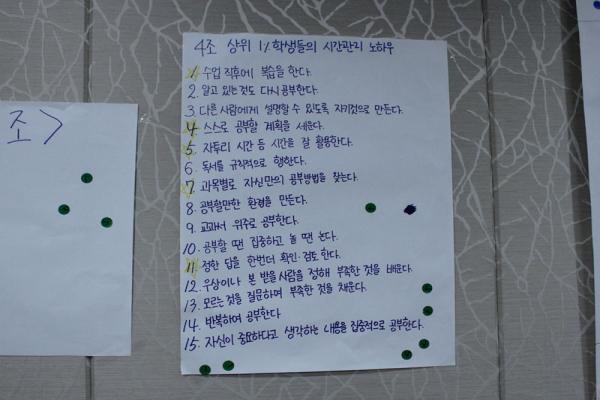 조>
4조 상위 1% 학생들의 시간관리 노하우
1. 수업 직후에 복습을 한다.
2. 알고 있는것도 다시 공부한다.
3. 다른 사람에게 설명할 수 있도록 자기것으로 만든다.
4. 스스로 공부할 계획을 세운다.
5. 자투리 시간 등 시간을 잘 활용한다.
6. 독서를 규칙적으로 행한다.
7. 과목별로 자신만의 공부방법을 찾는다.
8. 공부할만한 환경을 만든다.
9. 교과서 위주로 공부한다.
10. 공부할 땐 집중하고 놀 땐 논다.
11. 정한 답을 한번더 확인·검토 한다.
12. 우상이나 본 받을 사람을 정해 부족한 것을 배운다.
13. 모르는 것을 질문하며 부족한 것을 채운다.
14. 반복하여 공부한다
15. 자신이 중요하다고 생각하는 내용을 집중적으로 공부한다.